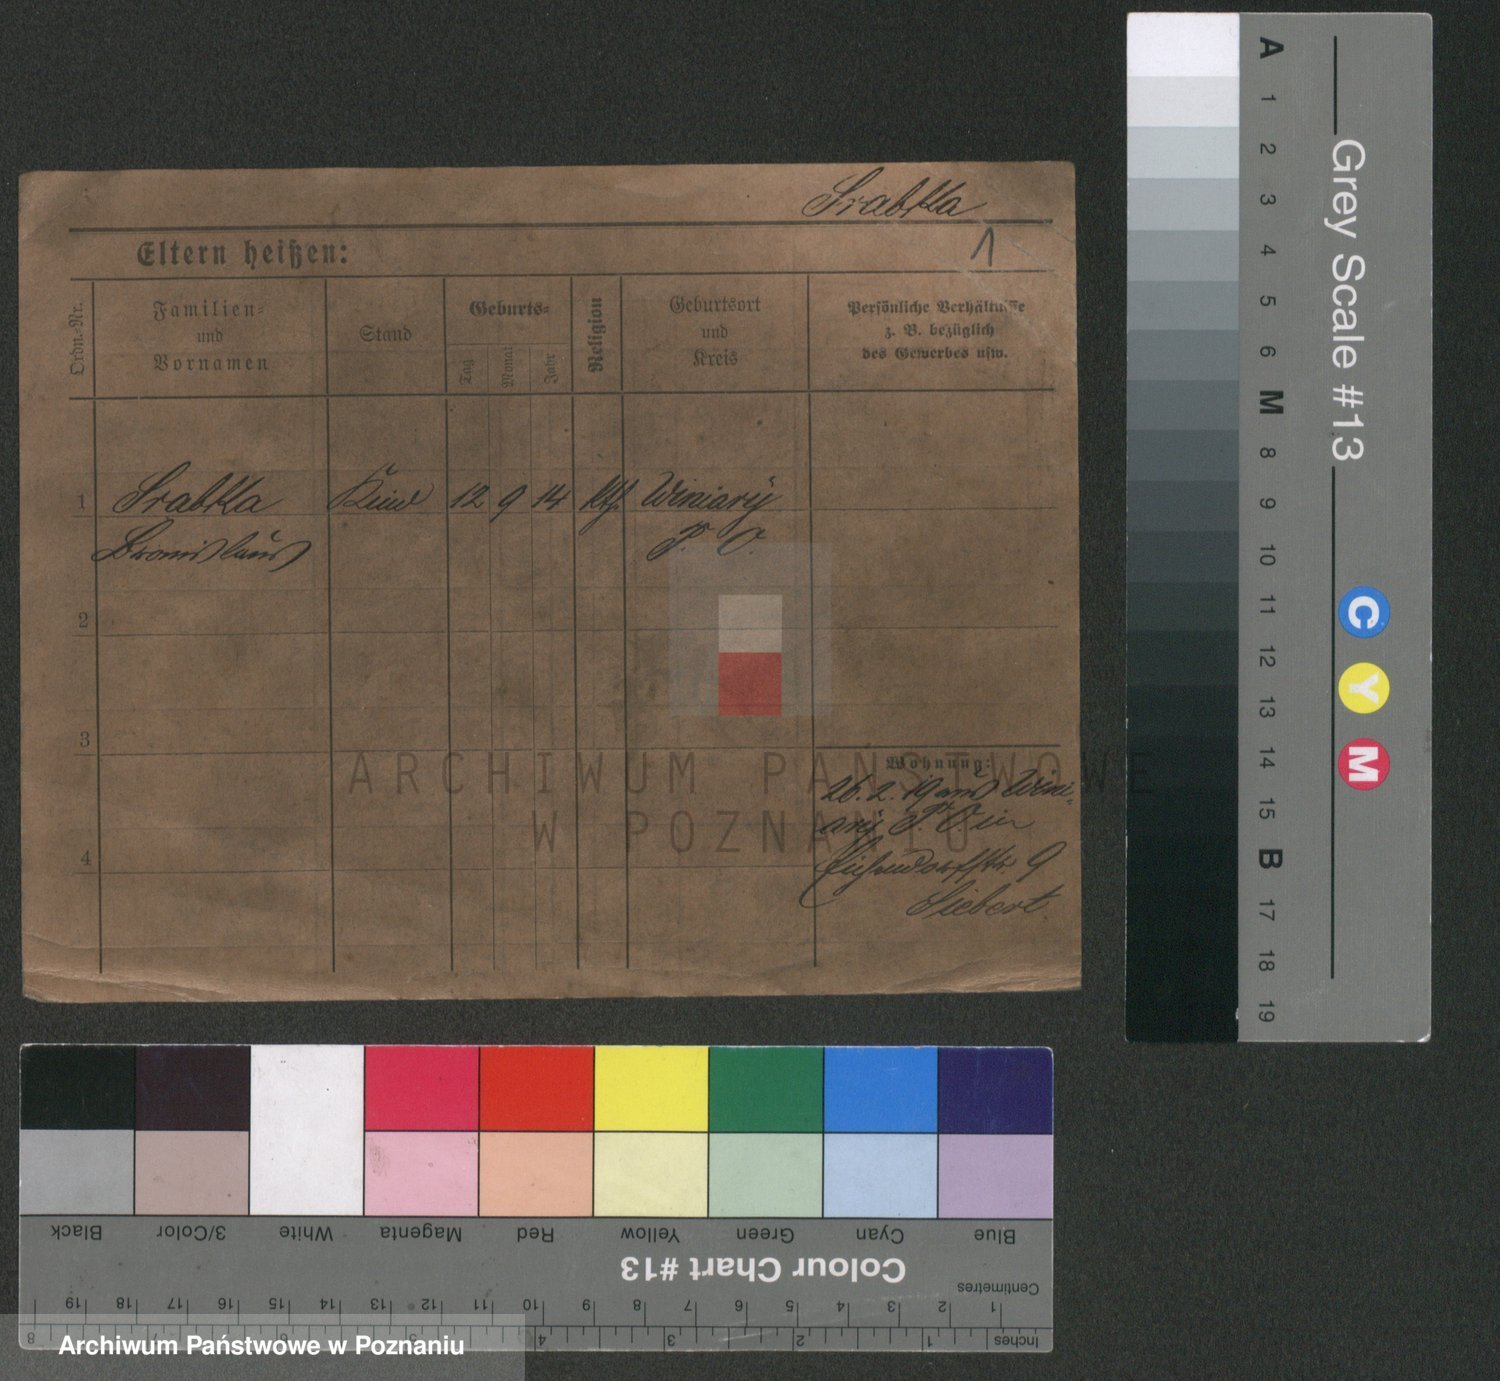 Srabka
1
Eltern heißen:
Ordn.-Nr.
Familien-
und
Vornamen
Stand
Geburts-
Tag
Monat
Jahr
Religion
Geburtsort
und
Kreis
Persönliche Verhältnisse
z. B. bezüglich
des Gewerbes usw.
1 Srabka Kind 12 9 14 kth. Winiary
Bronislaus P. O.
2
3
4
Wohnung:
26. 2. 19 aus Wini-
ary P. O. in
Eichendorffstr. 9
Siebert
ARCHIWUM PAŃSTWOWE
W POZNANIU
A 1 2 3 4 5 6 M 8 9 10 11 12 13 14 15 B 17 18 19
Grey Scale #13
C Y M
Blue Cyan Green Yellow Red Magenta White 3/Color Black
Colour Chart #13
Centimetres
1 2 3 4 5 6 7 8 9 10 11 12 13 14 15 16 17 18 19
Inches 1 2 3 4 5 6 7 8
Archiwum Państwowe w Poznaniu